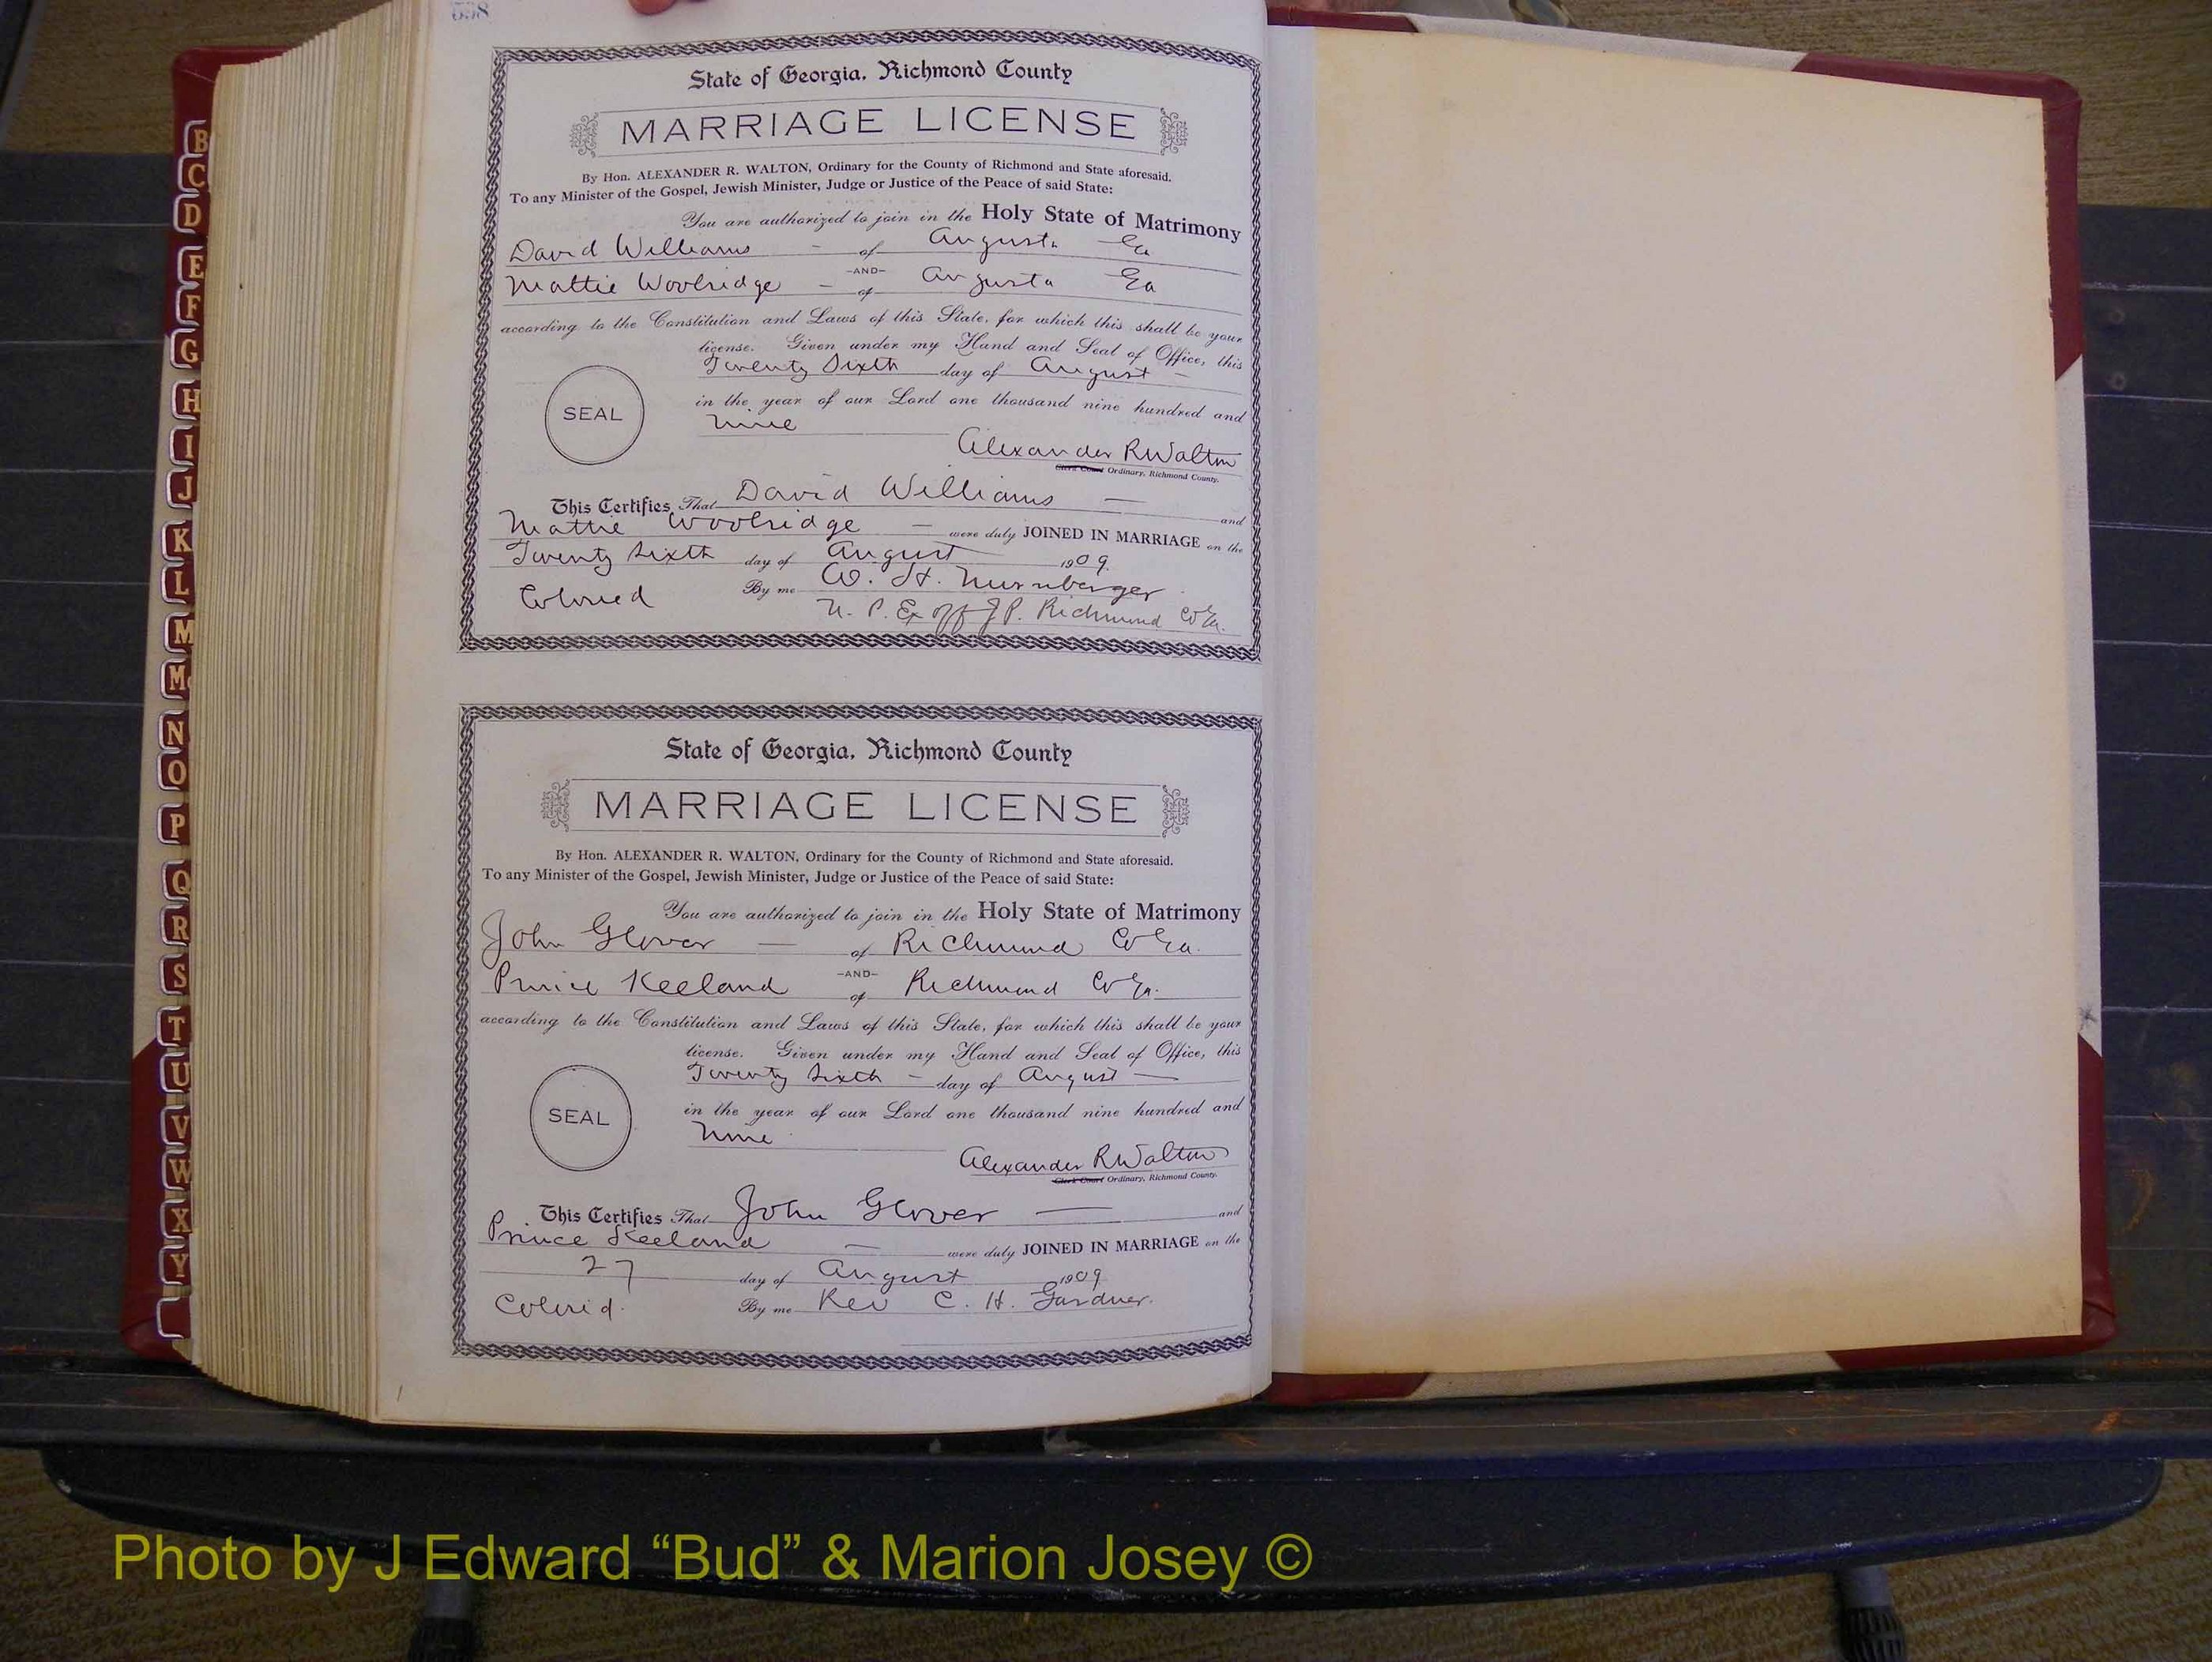 558
State of Georgia, Richmond County
MARRIAGE LICENSE
By Hon. ALEXANDER R. WALTON, Ordinary for the County of Richmond and State aforesaid.
To any Minister of the Gospel, Jewish Minister, Judge or Justice of the Peace of said State:
You are authorized to join in the Holy State of Matrimony
David Williams - of Augusta Ga
-AND-
Mattie Woolridge - of Augusta Ga
according to the Constitution and Laws of this State, for which this shall be your
license. Given under my Hand and Seal of Office, this
Twenty Sixth day of August -
in the year of our Lord one thousand nine hundred and
SEAL
nine
Alexander R Walton
Clerk Court Ordinary, Richmond County.
This Certifies That David Williams — and
Mattie Woolridge — were duly JOINED IN MARRIAGE on the
Twenty Sixth day of August 1909.
Colored By me W. H. Nurnberger
N. P. Ex off J P. Richmond Co Ga.
State of Georgia, Richmond County
MARRIAGE LICENSE
By Hon. ALEXANDER R. WALTON, Ordinary for the County of Richmond and State aforesaid.
To any Minister of the Gospel, Jewish Minister, Judge or Justice of the Peace of said State:
You are authorized to join in the Holy State of Matrimony
John Glover — of Richmond Co Ga.
-AND-
Prince Keeland of Richmond Co Ga.
according to the Constitution and Laws of this State, for which this shall be your
license. Given under my Hand and Seal of Office, this
Twenty Sixth - day of August —
in the year of our Lord one thousand nine hundred and
SEAL
Nine
Alexander R Walton
Clerk Court Ordinary, Richmond County.
This Certifies That John Glover — and
Prince Keeland — were duly JOINED IN MARRIAGE on the
27 day of August 1909
Colored. By me Rev C. H. Gardner.
B
C
D
E
F
G
H
I
J
K
L
M
Mc
N
O
P
Q
R
S
T
U
V
W
X
Y
Photo by J Edward “Bud” & Marion Josey ©